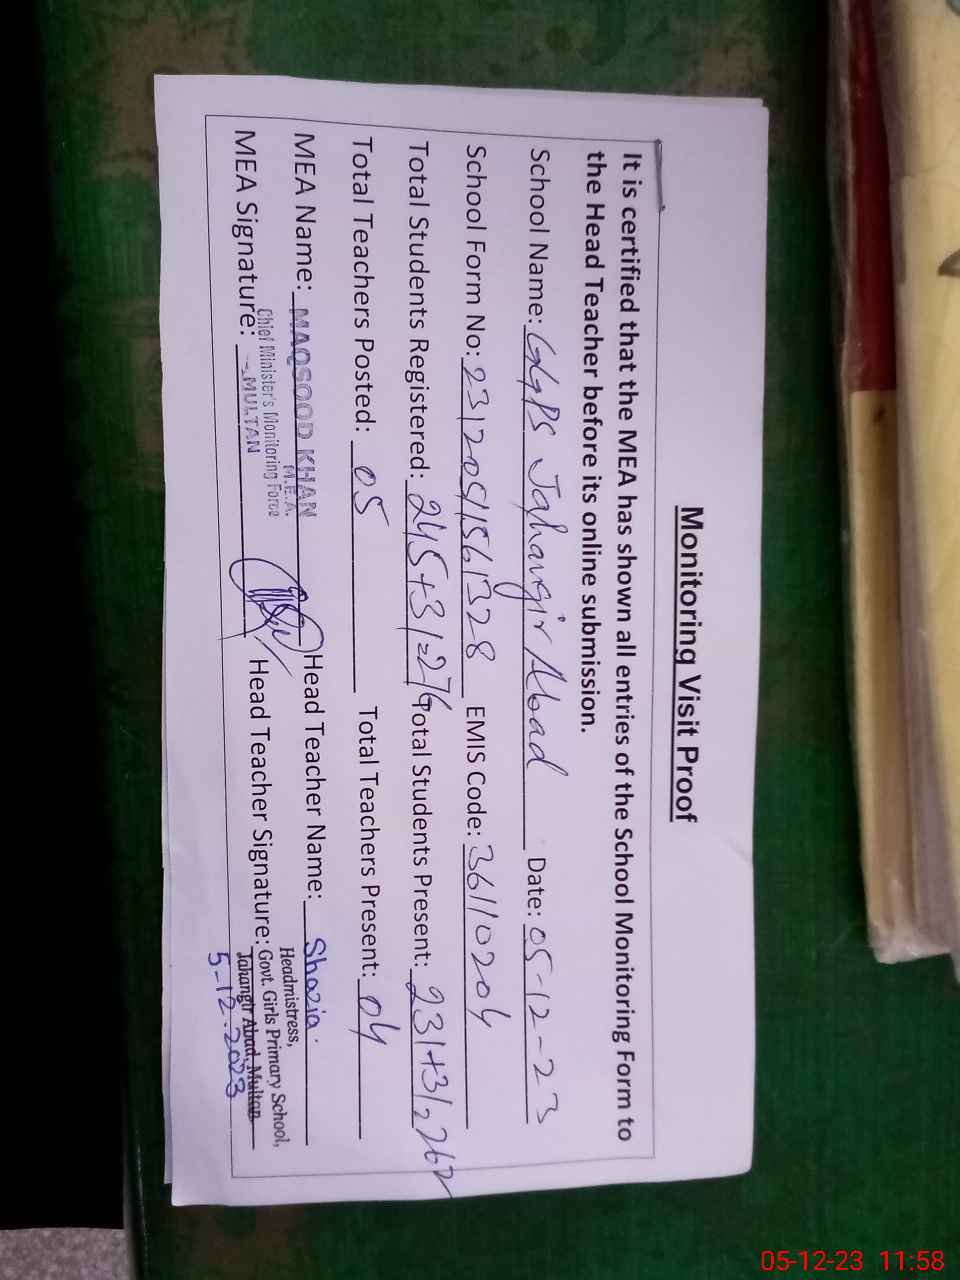 Monitoring Visit Proof
It is certified that the MEA has shown all entries of the School Monitoring Form to
the Head Teacher before its online submission.
School Name: GGPS Jahangir Abad Date: 05-12-23
School Form No: 2312051561328 EMIS Code: 36110204
Total Students Registered: 245+31=276 Total Students Present: 231+31=262
Total Teachers Posted: 05 Total Teachers Present: 04
MEA Name: MAQSOOD KHAN Head Teacher Name: Shazia
M.E.A.
Chief Minister's Monitoring Force
MULTAN
Headmistress,
Govt. Girls Primary School,
Jahangir Abad, Multan
MEA Signature: Head Teacher Signature:
5-12.2023
05-12-23 11:58